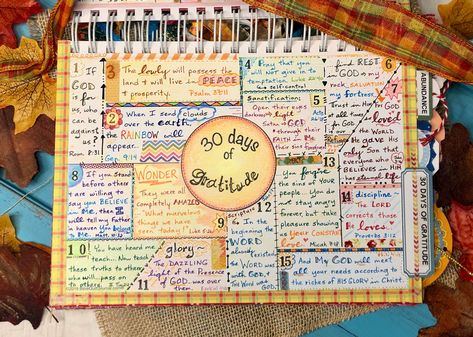 1 If
GOD is
for
us,
who
can be
against
us?
Rom. 8:31
3 The lowly will possess the
land & will live in PEACE
& prosperity. Psalm 37:11
4 Pray that you
will NOT give in to
temptation. Luke 22:40
(self-control)
5
Sanctification:
Open their
eyes
light
Satan → GOD
through their
FAITH in
Me
6
find REST
in GOD
is my
rock, SALVATION
my fortress.
Trust in Him
at all times
7
GOD
loved
the WORLD
He gave His
only Son that
everyone who
BELIEVES in
HIM
2 When I send clouds
over the earth,
the RAINBOW will
appear
Gen. 9:14
30 days
of
gratitude
8 If you stand
before others
& are willing to
say you BELIEVE
in Me, then I
will tell my Father
in heaven you belong
to Me. Matt. 10:32
WONDER
They were all
completely AMAZED
"What marvelous
things we have
seen today!" Luke 5:26
9
13
You forgive
the sins of your
people. You do
not stay angry
forever, but take
pleasure in
showing us your CONSTANT
love Micah 7:18
14
discipline-
The LORD
corrects those
He loves.
Proverbs 3:12
10 You heard me
teach... Now teach
these truths to others
who will pass on
to others.
11
glory~
The DAZZLING
light of the Presence
of GOD was over
them.
12
Scripture
In the
beginning
the WORD
already
existed
the WORD
was with
GOD. &
the Word was
GOD.
15 And My GOD will meet
all your needs according to
the riches of HIS GLORY in Christ.
ABUNDANCE
30 DAYS OF GRATITUDE